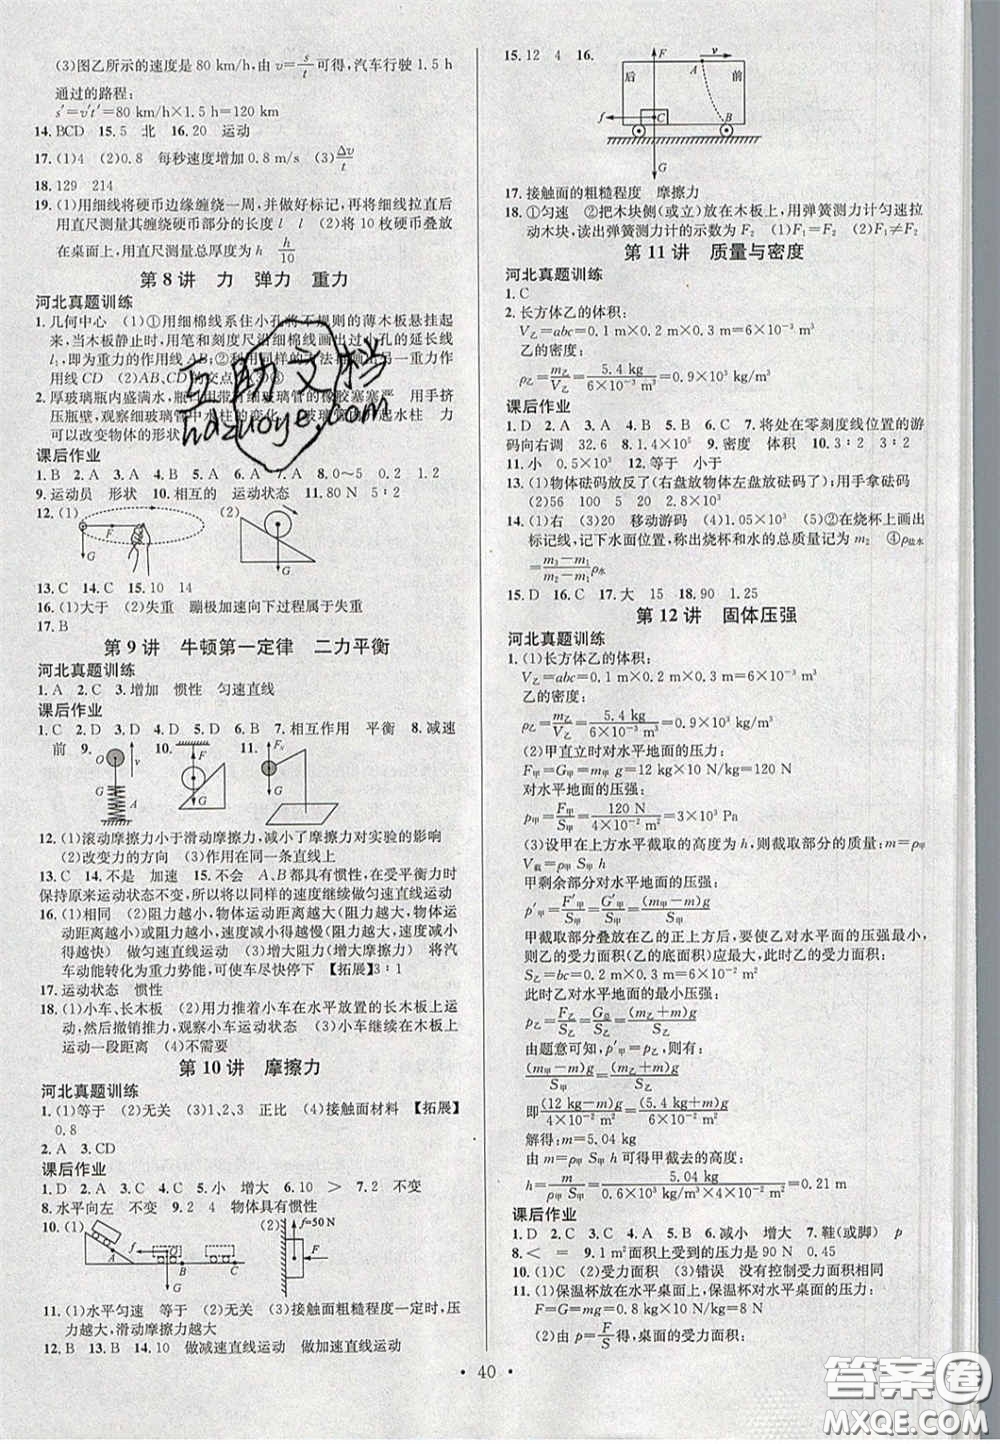 (3)图乙所示的速度是 80 km/h,由 v=s/t 可得,汽车行驶 1.5 h
通过的路程:
s′=v′t′=80 km/h×1.5 h=120 km
14. BCD 15. 5 北 16. 20 运动
17. (1)4 (2)0.8 每秒速度增加 0.8 m/s (3)Δv/t
18. 129 214
19. (1)用细线将硬币边缘缠绕一周,并做好标记,再将细线拉直后
用直尺测量其缠绕硬币部分的长度 l l (2)将 10 枚硬币叠放
在桌面上,用直尺测量总高度为 h h/10
第 8 讲 力 弹力 重力
河北真题训练
1. 几何中心 (1)①用细棉线系住小孔将不规则的薄木板悬挂起
来,当木板静止时,用笔和刻度尺沿细棉线画出过小孔的延长线
l₁,即为重力的作用线 AB;②利用
用线 CD (2)AB、CD 的交点
2. 厚玻璃瓶内盛满水,瓶口用带有细玻璃管的橡胶塞塞严 用手挤
压瓶壁,观察细玻璃管中水柱的变化 力
可以改变物体的形状
课后作业
1. B 2. A 3. A 4. B 5. A 6. B 7. A 8. 0～5 0.2 1.2
9. 运动员 形状 10. 相互的 运动状态 11. 80 N 5∶2
12. (1) F G (2) G
13. C 14. C 15. 10 14
16. (1)大于 (2)失重 蹦极加速向下过程属于失重
17. B
第 9 讲 牛顿第一定律 二力平衡
河北真题训练
1. A 2. C 3. 增加 惯性 匀速直线
课后作业
1. C 2. D 3. D 4. A 5. D 6. D 7. 相互作用 平衡 8. 减速
前 9. O v G A 10. F G 11. G
12. (1)滚动摩擦力小于滑动摩擦力,减小了摩擦力对实验的影响
(2)改变力的方向 (3)作用在同一条直线上
13. C 14. 不是 加速 15. 不会 A、B都具有惯性,在受平衡力时
保持原来运动状态不变,所以将以同样的速度继续做匀速直线运动
16. (1)相同 (2)阻力越小,物体运动距离越大(阻力越大,物体运
动距离越小)或阻力越小,速度减小得越慢(阻力越大,速度减小
得越快) 做匀速直线运动 (3)增大阻力(增大摩擦力) 将汽
车动能转化为重力势能,可使车尽快停下 【拓展】3∶1
17. 运动状态 惯性
18. (1)小车、长木板 (2)用力推着小车在水平放置的长木板上运
动,然后撤销推力,观察小车运动状态 (3)小车继续在木板上运
动一段距离 (4)不需要
第 10 讲 摩擦力
河北真题训练
1. (1)等于 (2)无关 (3)1、2、3 正比 (4)接触面材料 【拓展】
0.8
2. A 3. CD
课后作业
1. D 2. A 3. A 4. C 5. 小 增大 6. 10 ＞ 7. 2 不变
8. 水平向左 不变 9. 2 4 物体具有惯性
10. (1) f A B C G (2) f=50 N F
11. (1)水平匀速 等于 (2)无关 (3)接触面粗糙程度一定时,压
力越大,滑动摩擦力越大
12. B 13. B 14. 10 做减速直线运动 做加速直线运动
15. 12 4 16. F v A 后 前 f C B G
17. 接触面的粗糙程度 摩擦力
18. ①匀速 ②把木块侧(或立)放在木板上,用弹簧测力计匀速拉
动木块,读出弹簧测力计的示数为 F₂ F₁=F₂ F₁≠F₂
第 11 讲 质量与密度
河北真题训练
1. C
2. 长方体乙的体积:
V乙=abc=0.1 m×0.2 m×0.3 m=6×10⁻³ m³
乙的密度:
ρ乙=m乙/V乙=5.4 kg/6×10⁻³ m³=0.9×10³ kg/m³
课后作业
1. D 2. A 3. D 4. B 5. B 6. C 7. 将处在零刻度线位置的游
码向右调 32.6 8. 1×10³ 9. 密度 体积 10. 3∶2 3∶2
11. 小 0.5×10³ 12. 等于 小于
13. (1)物体砝码放反了(右盘放物体左盘放砝码);用手拿砝码
(2)56 100 5 20 2.8×10³
14. (1)右 (3)20 移动游码 (4)1.05×10³ (5)②在烧杯上画出
标记线,记下水面位置,称出烧杯和水的总质量记为 m₂ ④ρ盐水
=(m₃−m₁)/(m₂−m₁)ρ水
15. D 16. C 17. 大 15 18. 90 1.25
第 12 讲 固体压强
河北真题训练
1. (1)长方体乙的体积:
V乙=abc=0.1 m×0.2 m×0.3 m=6×10⁻³ m³
乙的密度:
ρ乙=m乙/V乙=5.4 kg/6×10⁻³ m³=0.9×10³ kg/m³
(2)甲直立时对水平地面的压力:
F甲=G甲=m甲g=12 kg×10 N/kg=120 N
对水平地面的压强:
p甲=F甲/S甲=120 N/4×10⁻² m²=3×10³ Pa
(3)设甲在上方水平截取的高度为 h,截取部分的质量:m=ρ甲
V截=ρ甲 S甲 h
甲剩余部分对水平地面的压强:
p′甲=F′甲/S甲=G′甲/S甲=(m甲−m)g/S甲
甲截取部分叠放在乙的正上方后,要使乙对水平面的压强最小,
则乙的受力面积(乙的底面积)应最大,此时乙的受力面积:
S乙=bc=0.2 m×0.3 m=6×10⁻² m²
此时乙对水平地面的最小压强:
p乙=F乙/S乙=G总/S乙=(m乙+m)g/S乙
由题意可知,p′甲=p乙,则有:
(m甲−m)g/S甲=(m乙+m)g/S乙
即(12 kg−m)g/4×10⁻² m²=(5.4 kg+m)g/6×10⁻² m²
解得:m=5.04 kg
由 m=ρ甲 S甲 h 可得甲截去的高度:
h=m/ρ甲S甲=5.04 kg/0.6×10³ kg/m³×4×10⁻² m²=0.21 m
课后作业
1. D 2. D 3. C 4. A 5. B 6. 减小 增大 7. 鞋(或脚) p
8. ＜ ＝ 9. 1 m²面积上受到的压力是 90 N 0.45
10. (1)C (2)受力面积 (3)错误 没有控制受力面积相同
11. (1)保温杯放在水平桌面上,保温杯对水平桌面的压力:
F=G=mg=0.8 kg×10 N/kg=8 N
(2)由 p=F/S得,桌面的受力面积:
· 40 ·
互助文档
hdzuoye.com
答案圈
MXQE.COM